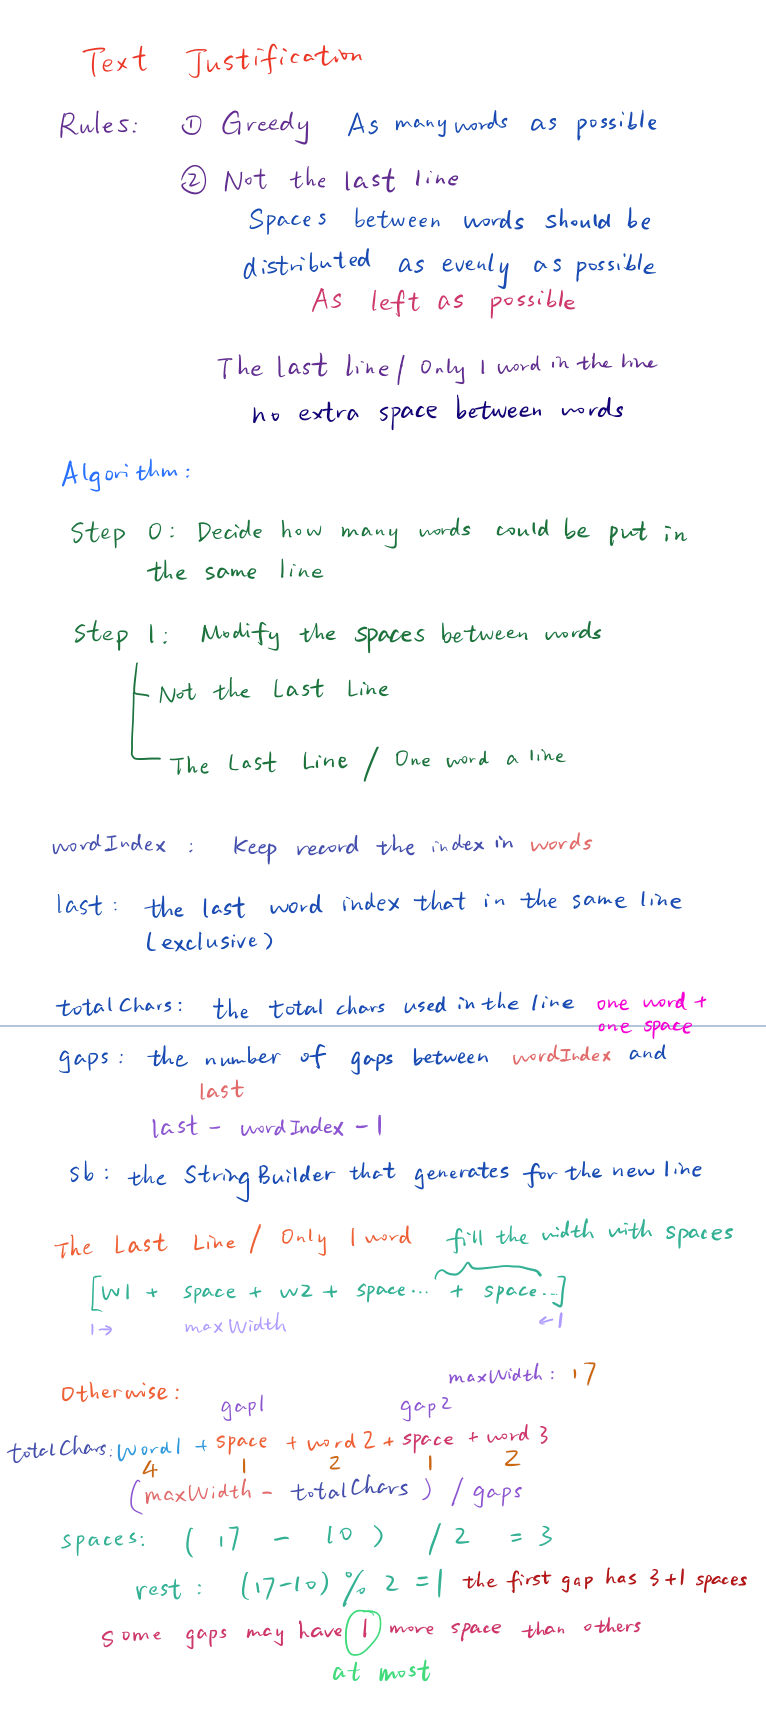 Text Justification
Rules: ① Greedy As many words as possible
② Not the last line
Spaces between words should be
distributed as evenly as possible
As left as possible
The last line / Only 1 word in the line
no extra space between words
Algorithm:
Step 0: Decide how many words could be put in
the same line
Step 1: Modify the spaces between words
Not the Last Line
The Last Line / One word a line
wordIndex : keep record the index in words
last: the last word index that in the same line
(exclusive)
totalChars: the total chars used in the line one word +
one space
gaps: the number of gaps between wordIndex and
last
last - wordIndex - 1
sb: the StringBuilder that generates for the new line
The Last Line / Only 1 word fill the width with spaces
[w1 + space + w2 + space... + space...]
1→ maxWidth ←1
maxWidth: 17
Otherwise:
gap1 gap2
totalChars: word1 + space + word 2 + space + word 3
4 1 2 1 2
(maxWidth - totalChars) / gaps
spaces: (17 - 10) / 2 = 3
rest: (17-10) % 2 = 1 the first gap has 3+1 spaces
some gaps may have 1 more space than others
at most